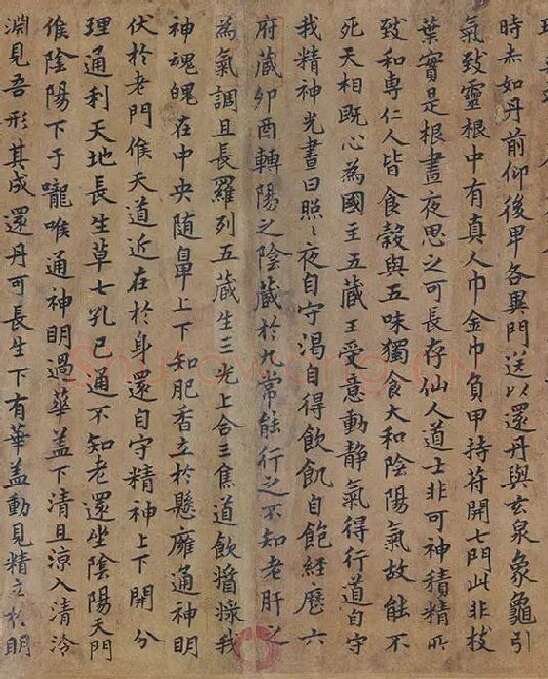 時赤如丹前仰後卑各異門送以還丹與玄泉象龜引
氣致靈根中有真人巾金巾負甲持苻開七門此非枝
葉實是根晝夜思之可長存仙人道士非可神積精所
致和專仁人皆食穀與五味獨食大和陰陽氣故能不
死天相既心為國主五藏王受意動靜氣得行道自守
我精神光晝日照〻夜自守渴自得飲飢自飽經歷六
府藏卯酉轉陽之陰藏於九常能行之不知老肝之
為氣調且長羅列五藏生三光上合三焦道飲醬㨿我
神魂魄在中央随鼻上下知肥香立於懸廱通神明
伏於老門候天道近在於身還自守精神上下開分
理通利天地長生草七孔已通不知老還坐陰陽天門
候陰陽下于嚨喉通神明過華盖下清且涼入清泠
淵見吾形其成還丹可長生下有華盖動見精立於明